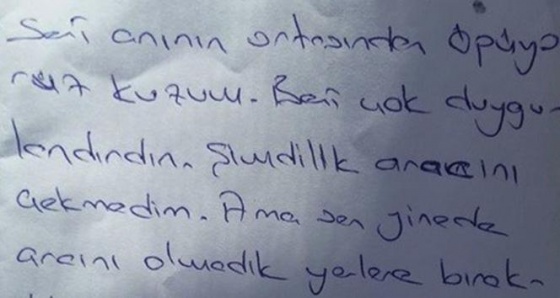 Seni anının ortasından öpüyo
ruz kuzum. Beni çok duygu-
landırdın. Şimdilik aracını
çekmedim. Ama sen yinede
aracını olmadık yerlere bırak-